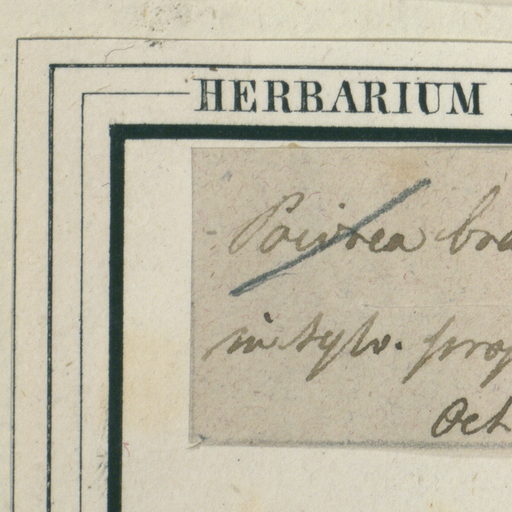 HERBARIUM
Poivrea bra
in sylv. prop
Oct